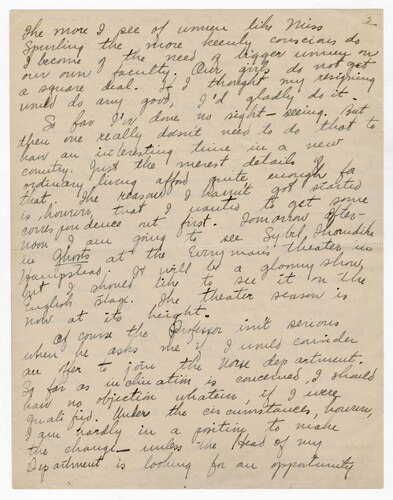 2
The more I see of women like Miss
Spurling the more keenly conscious do
I become of the need of bigger women on
our own faculty. Our girls do not get
a square deal. If I thought my resigning
would do any good, I'd gladly do it.
So far I've done no sight-seeing. But
then one really doesn't need to do that to
have an interesting time in a new
country. Just the merest details of
ordinary living afford quite enough for
that. The reason I haven't got started
is, however, that I wanted to get some
correspondence out first. Tomorrow after-
noon I am going to see Sybil Thorndike
in Ghosts at the Everyman Theater in
Hampstead. It will be a gloomy show,
but I should like to see it on the
English stage. The theater season is
now at its height.
Of course the Professor isn't serious
when he asks me if I would consider
an offer to join the Norse department.
So far as inclination is concerned, I should
have no objection whatever, if I were
qualified. Under the circumstances, however,
I am hardly in a position to make
the change — unless the Head of my
Department is looking for an opportunity